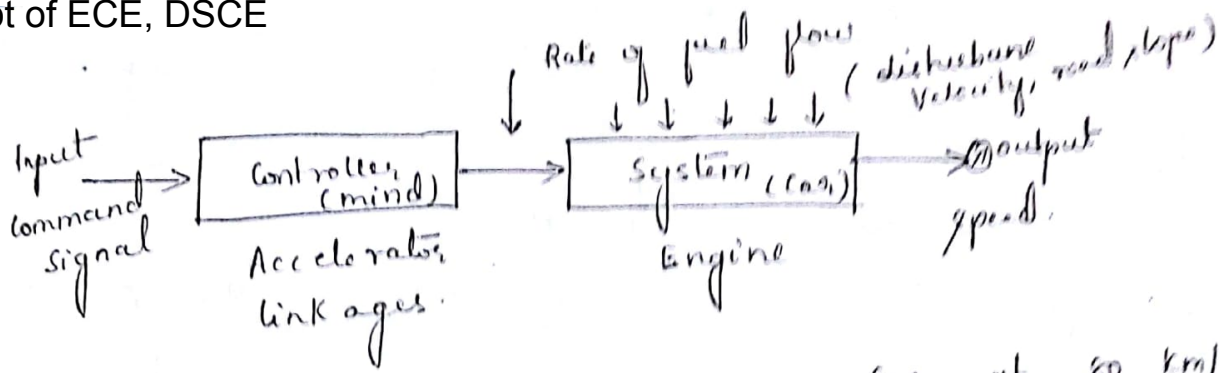 pt of ECE, DSCE
Rate of fuel flow
(disturbance
velocity, road, slope)
Input
command
signal
Controller
(mind)
Accelerator
linkages.
System (car)
Engine
output
speed.